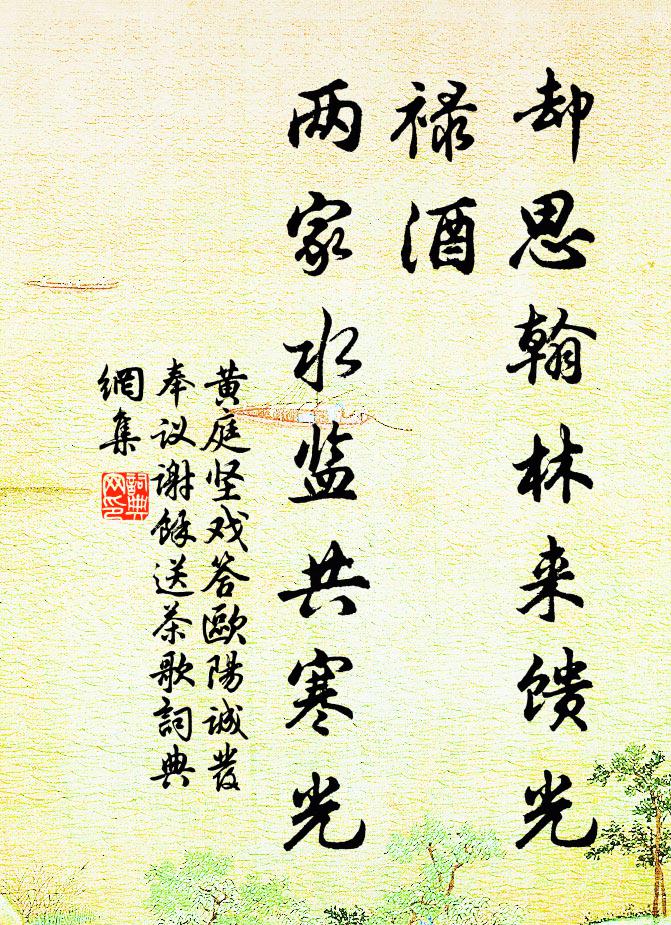 却思翰林来馈光
禄酒
两家水监共寒光
黄庭坚戏答歐陽诚發
奉议谢餘送茶歌詞典
網集
詞典
网印